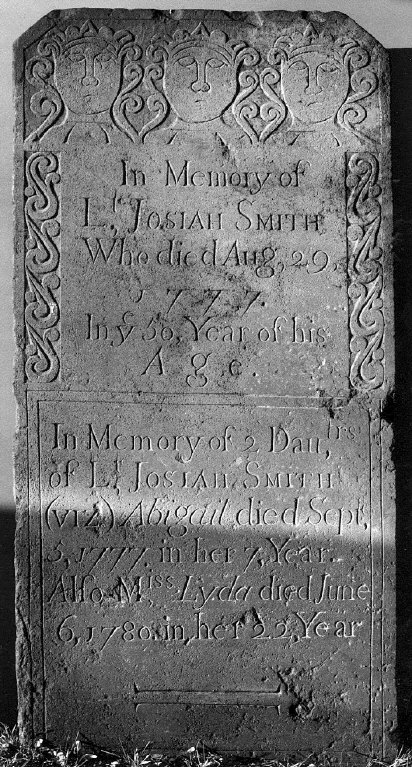 In Memory of
Lt JOSIAH SMITH
Who died Aug, 29,
1777.
In ye 50, Year of his
Age.
In Memory of 2 Dautrs,
of Lt JOSIAH SMITH
(VIZ) Abigail died Sept,
5, 1777, in her 7, Year.
Alſo Miss Lyda died June
6, 1780, in, her 22, Year